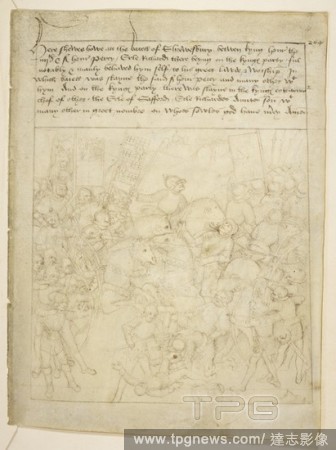 Here shewes howe at the batell of Shrewesbury betwen kyng Henr the
iiijth & sr Henr Percy Erle Richard there beyng on the kynges party ful
notably & manly behaved hym self to his gret lawde & worship In
which batell was slayne the said sr Henr Percy and many other wt
hym And on the kynges party there was slayne in the kynges cote armor
chef of other the Erle of Stafford Erle Richardes Auntes son wt
many other in greet nombre on whose sowles god have mercy Amen
TPG
www.tpgnews.com/達志影像